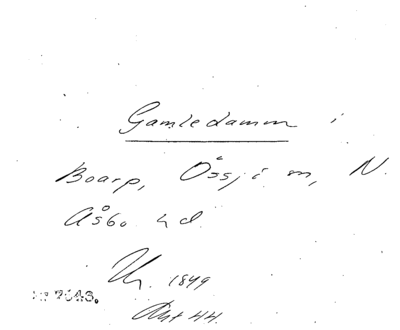 Gamledamm i
Boarp, Össjö sn, N.
Åsbo hd.
Ur. 1849
Akt 44.
Nr 7043.